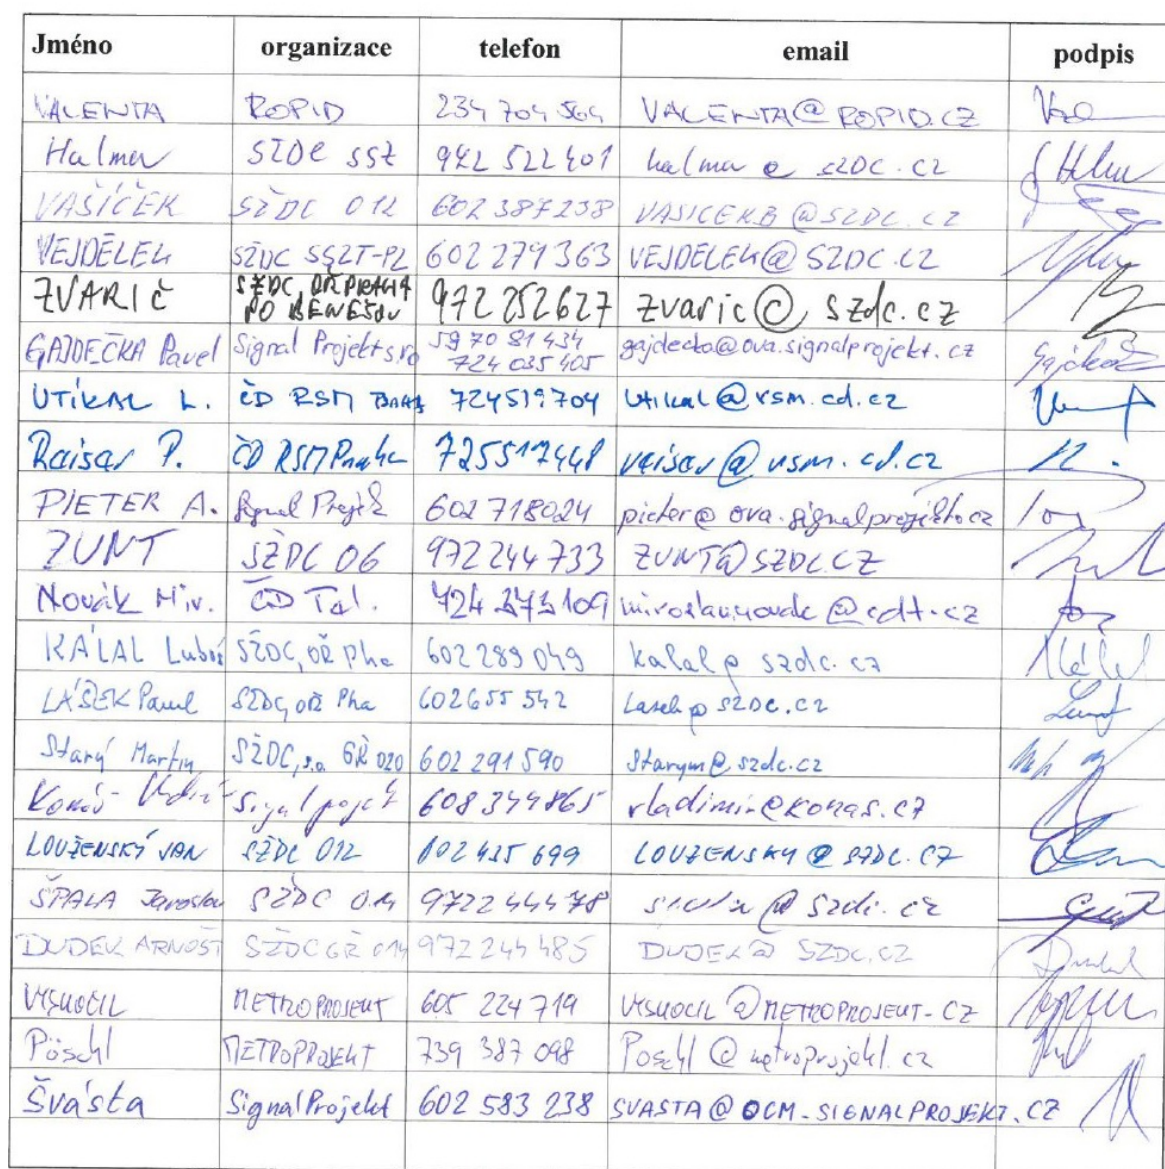 Jméno organizace telefon email podpis
VALENTA ROPID 234 704 564 VALENTA@ROPID.CZ
Halmer SŽDC SSZ 942 522 401 halmer@szdc.cz
VAŠÍČEK SŽDC O12 602 387 238 VASICEKB@SZDC.CZ
VEJDĚLEK SŽDC SSZT-PL 602 279 363 VEJDELEK@SZDC.CZ
ZVARIČ SŽDC, OŘ PRAHA 972 252627 zvaric@szdc.cz
PO BENEŠOV
GAJDEČKA Pavel Signal Projekt s.r.o 59 70 81 434 gajdecka@ova.signalprojekt.cz
724 035 405
UTÍKAL L. ČD RSM 724519704 utikal@rsm.cd.cz
Raisar P. ČD RSM Praha 725517448 raisar@rsm.cd.cz
PIETER A. Signal Projekt 602 718024 pieter@ova.signalprojekt.cz
ZUNT SŽDC O6 972 244 733 ZUNT@SZDC.CZ
Novák Mir. ČD Tel. 724 373 109 miroslav.novak@cdt.cz
KÁLAL Luboš SŽDC, OŘ Pha 602 289 049 kalal@szdc.cz
LÁSEK Pavel SŽDC, OŘ Pha 602 655 542 Lasek@szdc.cz
Starý Martin SŽDC, s.o. GŘ O20 602 291 590 Starym@szdc.cz
Signal projekt 608 344 865 vladimir@konas.cz
LOUŽENSKÝ JAN SŽDC O12 602 435 699 LOUZENSKY@SZDC.CZ
ŠPALA Jaroslav SŽDC O14 9722 444 78 spala@szdc.cz
DUDEK ARNOŠT SŽDC GŘ O14 972 244 485 DUDEK@SZDC.CZ
VYSKOČIL METROPROJEKT 605 224 719 VYSKOCIL@METROPROJEKT.CZ
Pöschl METROPROJEKT 739 387 098 Poschl@metroprojekt.cz
Švásta Signal Projekt 602 583 238 SVASTA@OCM-SIGNALPROJEKT.CZ